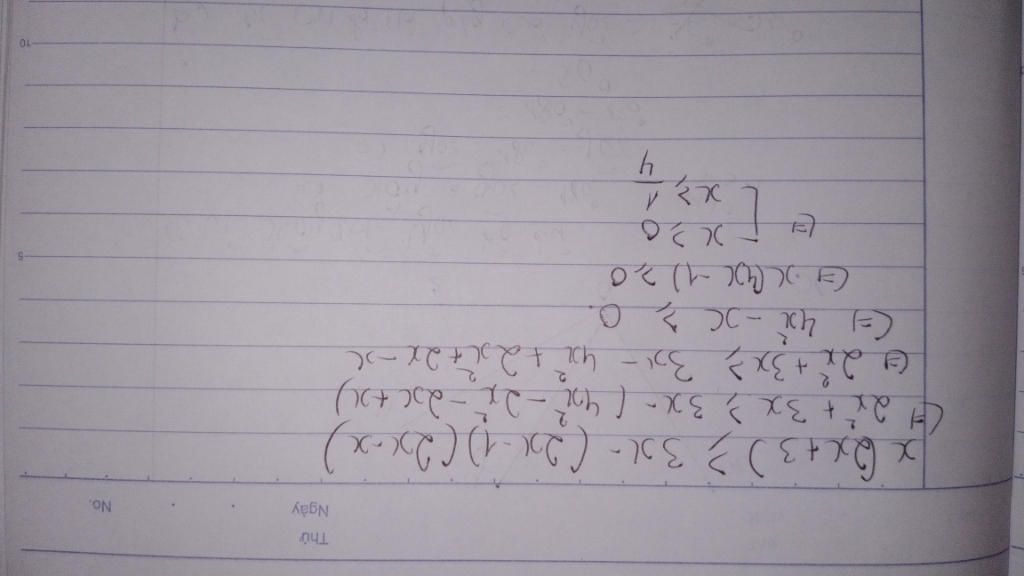 Thứ
Ngày
No.
x(2x+3) ≥ 3x - (2x-1)(2x-x)
(=) 2x² + 3x ≥ 3x - (4x² - 2x² - 2x + x)
(=) 2x² + 3x ≥ 3x - 4x² + 2x² + 2x - x
(=) 4x² - x ≥ 0
(=) x(4x-1) ≥ 0
(=) [ x ≥ 0
x ≥ 1/4
5
10